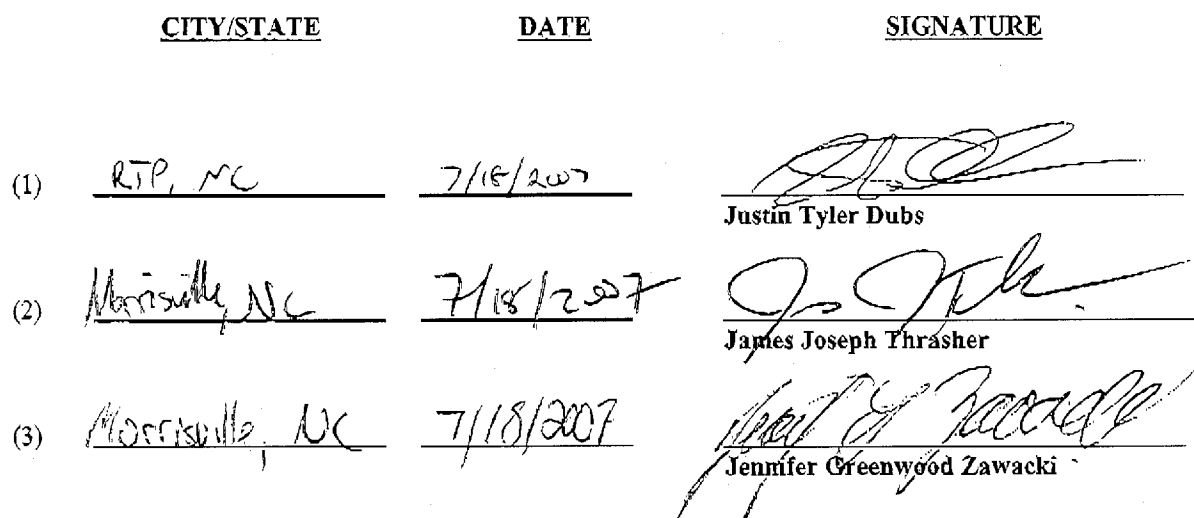 CITY/STATE DATE SIGNATURE
(1) RTP, NC 7/18/2007
Justin Tyler Dubs
(2) Morrisville, NC 7/18/2007
James Joseph Thrasher
(3) Morrisville, NC 7/18/2007
Jennifer Greenwood Zawacki